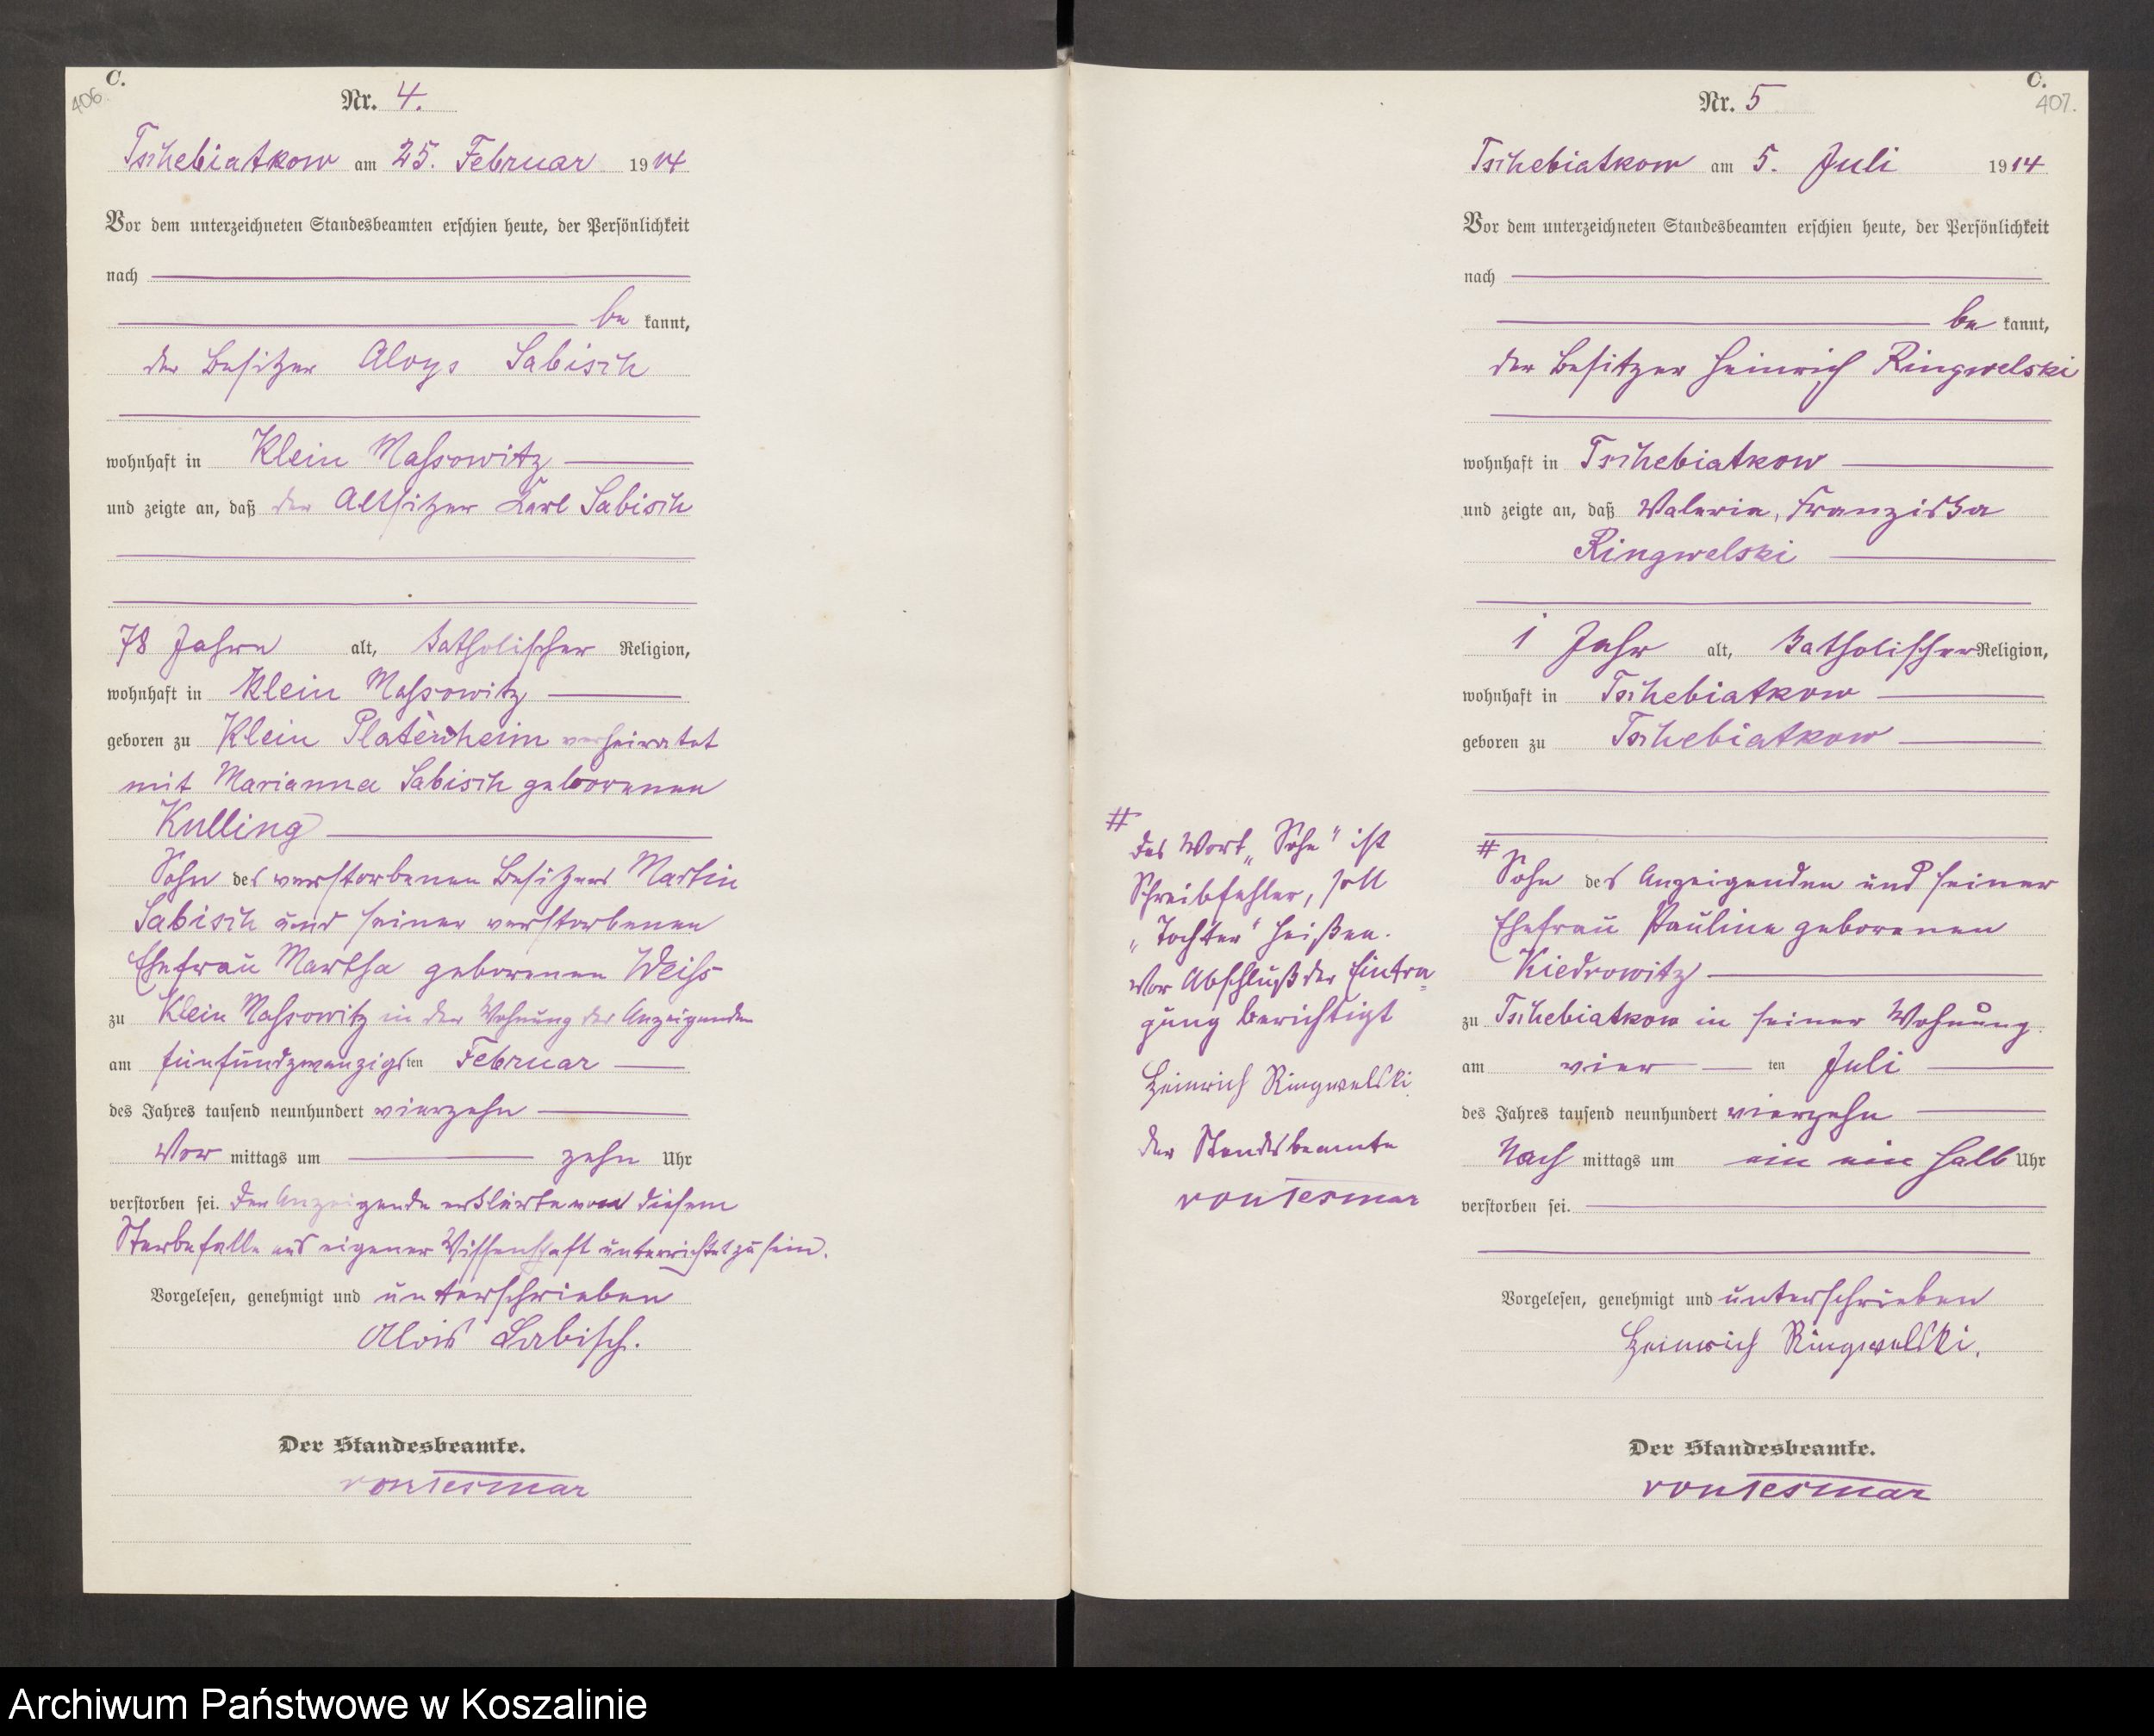 406.
C.
Nr. 4.
Tschebiatkow am 25. Februar 1914
Vor dem unterzeichneten Standesbeamten erschien heute, der Persönlichkeit
nach
be kannt,
der Besitzer Aloys Sabisch
wohnhaft in Klein Massowitz
und zeigte an, daß der Altsitzer Karl Sabisch
78 Jahre alt, katholischer Religion,
wohnhaft in Klein Massowitz
geboren zu Klein Platenheim verheiratet
mit Marianna Sabisch geborenen
Kulling
Sohn des verstorbenen Besitzers Martin
Sabisch und seiner verstorbenen
Ehefrau Martha geborenen Weiss
zu Klein Massowitz in der Wohnung des Anzeigenden
am fünfundzwanzigsten Februar
des Jahres tausend neunhundert vierzehn
Vor mittags um zehn Uhr
verstorben sei. Der Anzeigende erklärte von diesem
Sterbefalle aus eigener Wissenschaft unterrichtet zu sein.
Vorgelesen, genehmigt und unterschrieben
Alois Sabisch.
Der Standesbeamte.
von Tesmar
C.
407.
Nr. 5
Tschebiatkow am 5. Juli 1914
Vor dem unterzeichneten Standesbeamten erschien heute, der Persönlichkeit
nach
be kannt,
der Besitzer Heinrich Ringwelski
wohnhaft in Tschebiatkow
und zeigte an, daß Valeria, Franziska
Ringwelski
1 Jahr alt, katholischer Religion,
wohnhaft in Tschebiatkow
geboren zu Tschebiatkow
# Sohn des Anzeigenden und seiner
Ehefrau Pauline geborenen
Kiedrowitz
zu Tschebiatkow in seiner Wohnung
am vier ten Juli
des Jahres tausend neunhundert vierzehn
Nach mittags um ein ein halb Uhr
verstorben sei.
Vorgelesen, genehmigt und unterschrieben
Heinrich Ringwelski.
Der Standesbeamte.
von Tesmar
#
Das Wort „Sohn" ist
Schreibfehler, soll
„Tochter" heißen.
Vor Abschluß der Eintra=
gung berichtigt
Heinrich Ringwelski.
Der Standesbeamte
von Tesmar
Archiwum Państwowe w Koszalinie